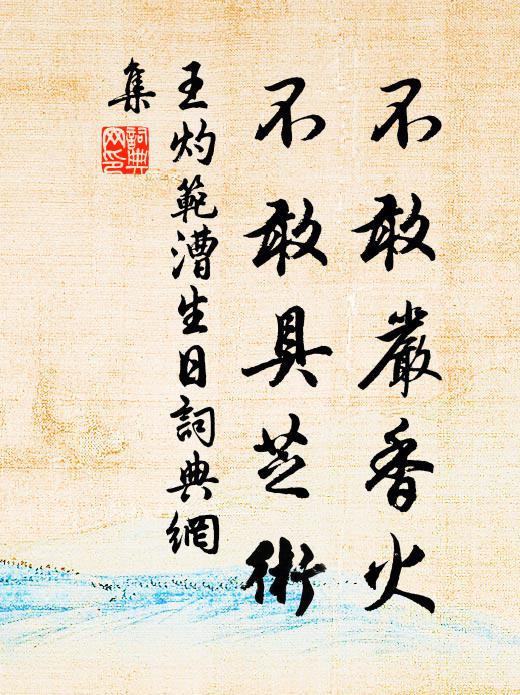 不敢嚴香火
不敢具芝術
王灼範漕生日詞典網
集
詞典網印